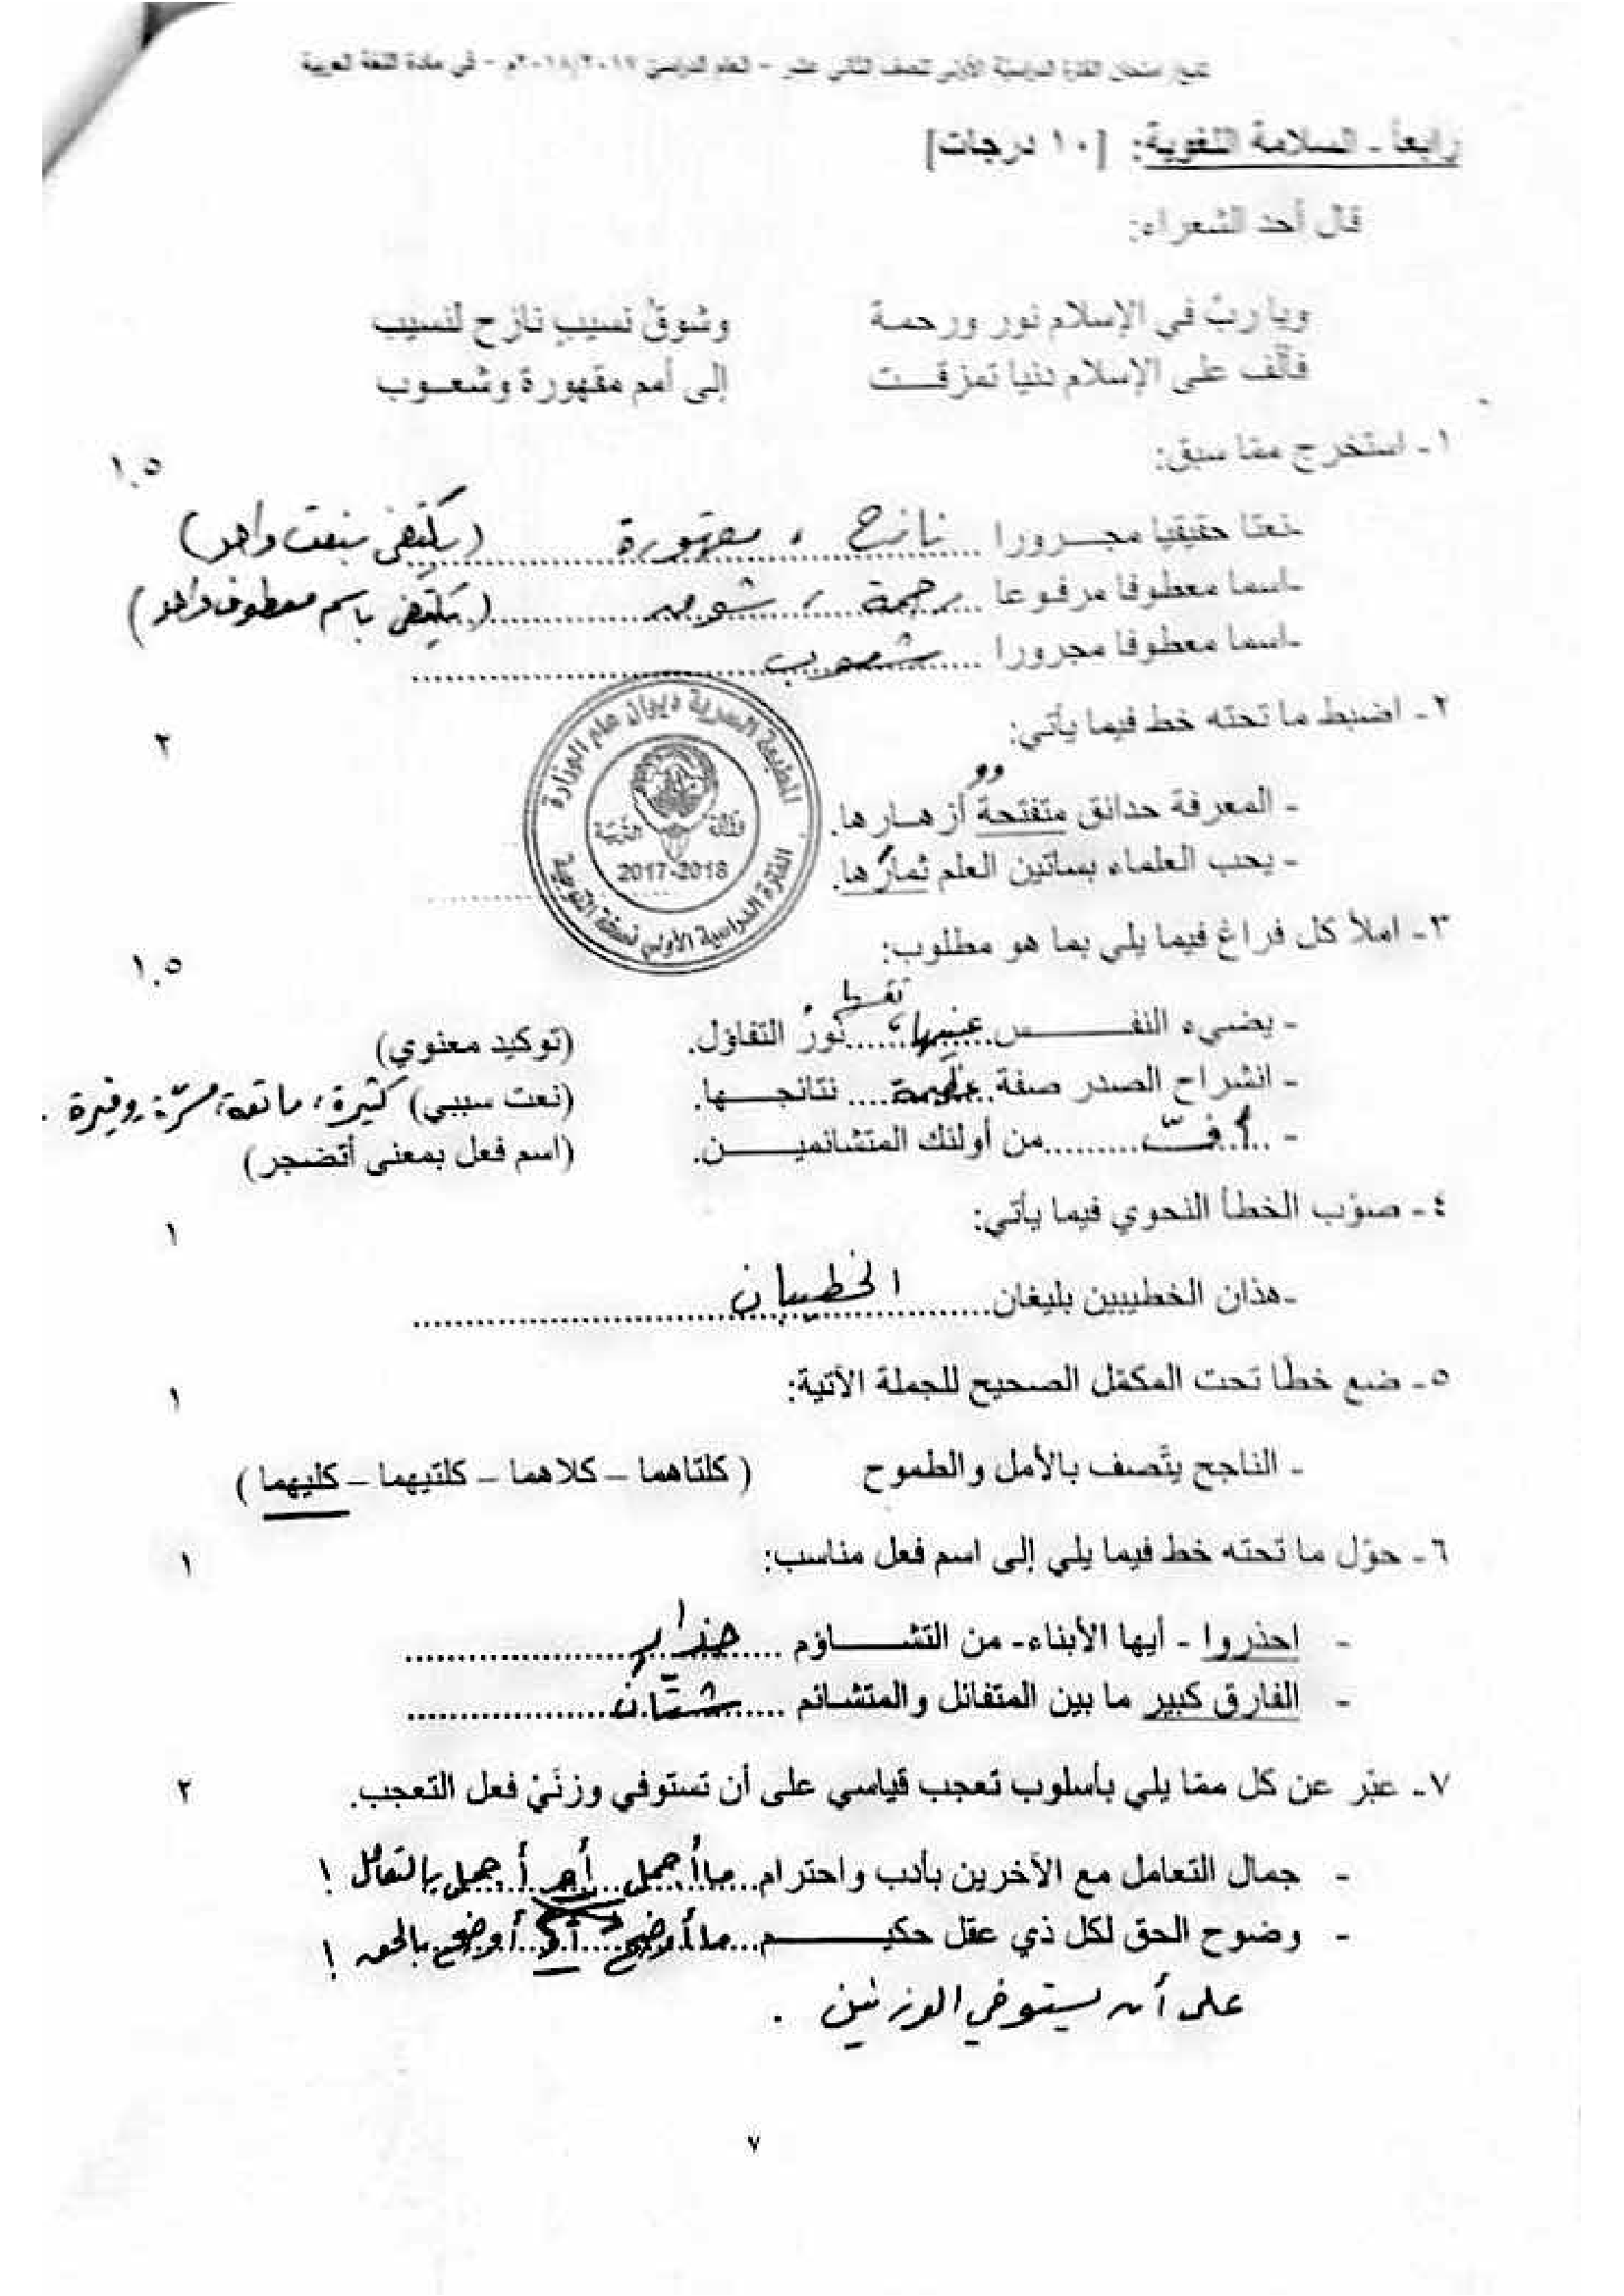 تابع: امتحان الفترة الدراسية الأولى للصف الثاني عشر – العام الدراسي ٢٠١٧/٢٠١٨م – في مادة اللغة العربية
رابعاً - السلامة اللغوية: [١٠ درجات]
قال أحد الشعراء:
ويا ربّ في الإسلام نور ورحمة وشوقُ نسيبٍ نازح لنسيب
فألّف على الإسلام دنيا تمزقت إلى أمم مقهورة وشعوب
١- استخرج ممّا سبق: ١,٥
-نعتا حقيقيا مجرورا ... نازح ، مقهورة ... (يكتفى بنعت واحد)
-اسما معطوفا مرفوعا ... رحمة ، شوق ... (يكتفى باسم معطوف واحد)
-اسما معطوفا مجرورا ... شعوب ...
٢- اضبط ما تحته خط فيما يأتي: ٢
- المعرفة حدائق متفتحةٌ أزهارها.
- يحب العلماء بساتين العلم ثمارَها.
المطبعة السرية ديوان عام الوزارة
وزارة التربية
2017-2018
الفترة الدراسية الأولى نسخة التوجيه
٣- املأ كل فراغ فيما يلي بما هو مطلوب: ١,٥
- يضيء النفس...عينها، نفسها...نورُ التفاؤل. (توكيد معنوي)
- انشراح الصدر صفة...عظيمة... نتائجها. (نعت سببي) كثيرة، ماتعة، وفيرة .
- ...أفّ...من أولئك المتشائمين. (اسم فعل بمعنى أتضجر)
٤- صوّب الخطأ النحوي فيما يأتي: ١
-هذان الخطيبين بليغان... الخطيبان ...
٥- ضع خطًا تحت المكمّل الصحيح للجملة الآتية: ١
- الناجح يتّصف بالأمل والطموح ( كلتاهما – كلاهما – كلتيهما – كليهما )
٦- حوّل ما تحته خط فيما يلي إلى اسم فعل مناسب: ١
- احذروا - أيها الأبناء- من التشاؤم ... حذارِ ...
- الفارق كبير ما بين المتفائل والمتشائم ... شتّان ...
٧- عبّر عن كل ممّا يلي بأسلوب تعجب قياسي على أن تستوفي وزنَيْ فعل التعجب. ٢
- جمال التعامل مع الآخرين بأدب واحترام...ما أجمل أو أجمل بالتعامل !
- وضوح الحق لكل ذي عقل حكيم...ما أوضح أو أوضح بالحق !
على أن يستوفي الوزنين .
٧